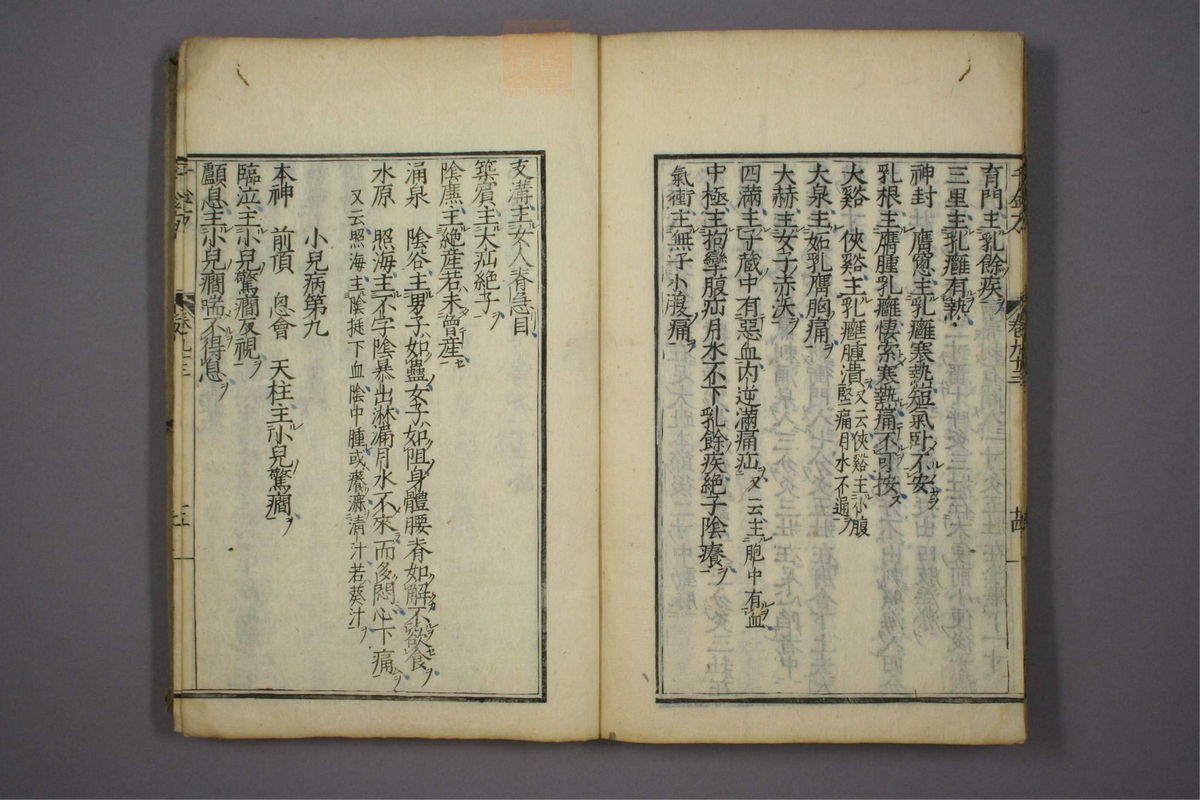 肓門主乳餘疾
三里主乳癰有熱
神封 膺窓主乳癰寒熱短氣臥不安
乳根主膺腫乳癰悽索寒熱痛不可按
大谿 俠谿主乳癰腫潰又云俠谿主小腹堅痛月水不通
大泉主妬乳膺胸痛
大赫主女子赤沃
四滿主子藏中有惡血内逆滿痛疝又云主胞中有血
中極主拘攣腹疝月水不下乳餘疾絶子陰癢
氣衝主無子小腹痛
支溝主女人脊急目
築賓主大疝絶子
陰廉主絶産若未曾産
涌泉 陰谷主男子如蠱女子如阻身體腰脊如解不欲食
水原 照海主不字陰暴出淋漏月水不來而多悶心下痛
又云照海主陰挺下血陰中腫或癢漉清汁若葵汁
小兒病第九
本神 前頂 囟會 天柱主小兒驚癇
臨泣主小兒驚癇反視
顱息主小兒癇喘不得息